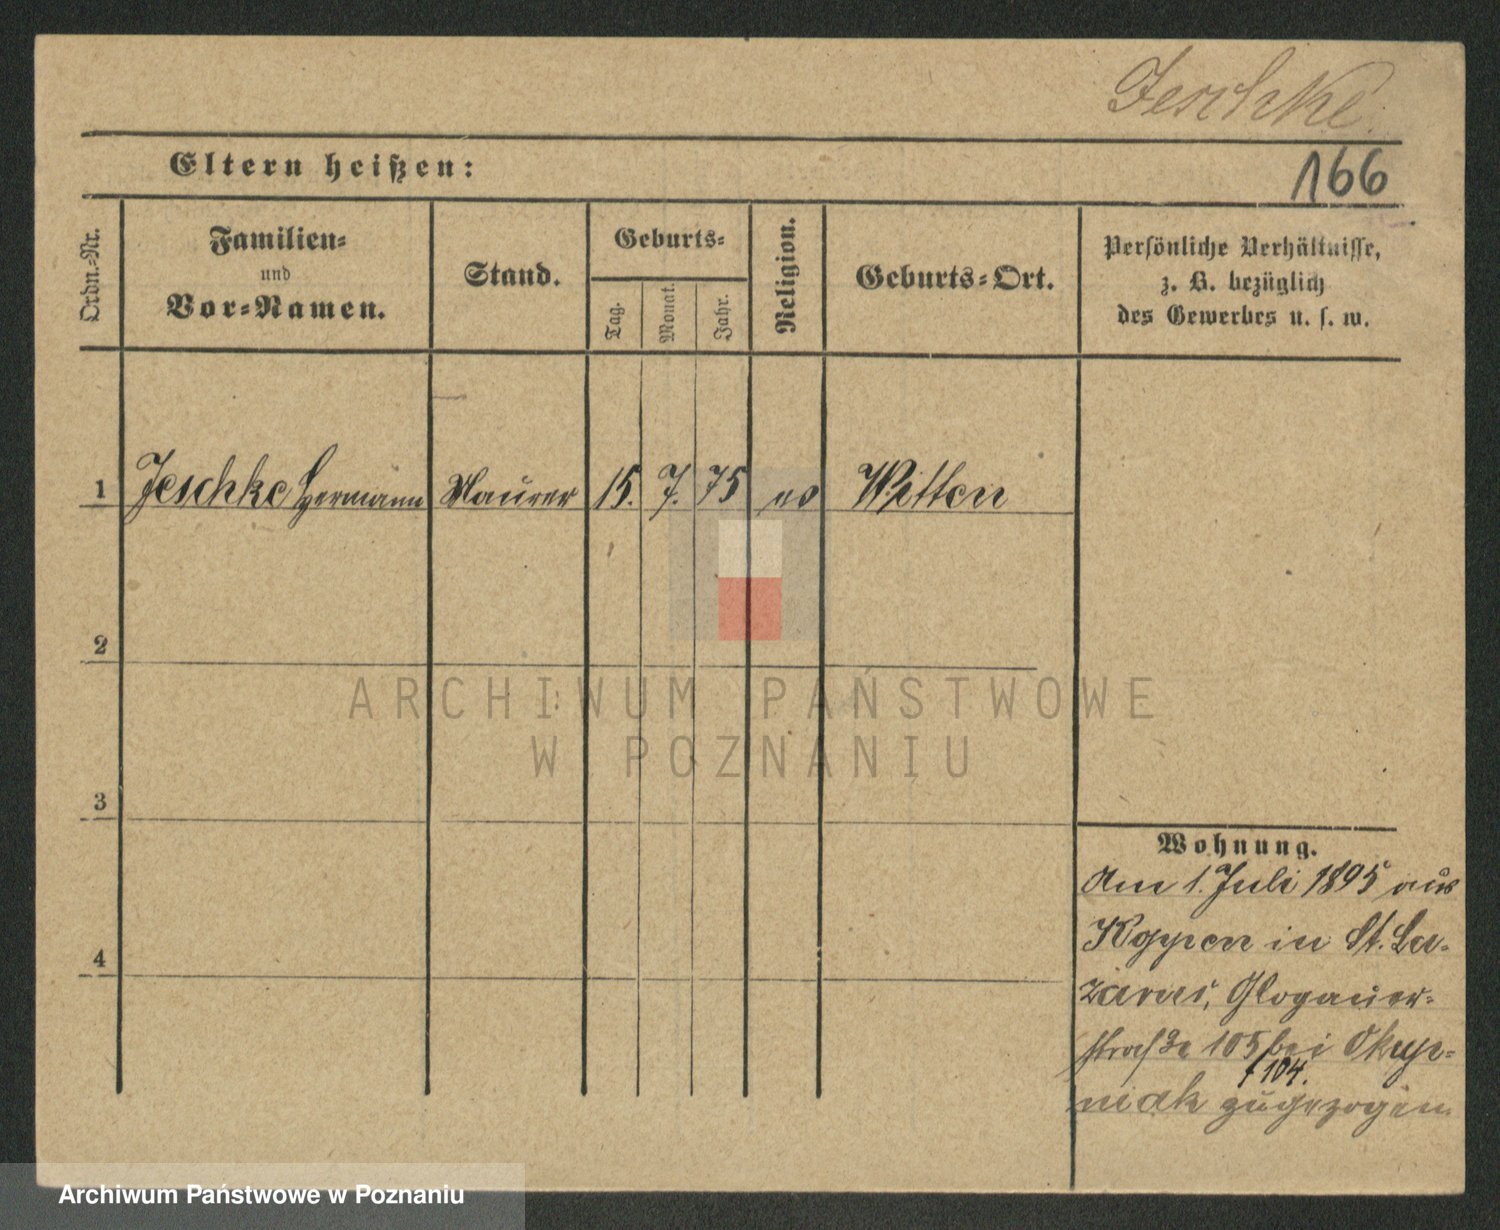 Jeschke
Eltern heißen:
166
Ordn.-Nr.
Familien-
und
Vor-Namen.
Stand.
Geburts-
Tag.
Monat.
Jahr.
Religion.
Geburts-Ort.
Persönliche Verhältnisse,
z. B. bezüglich
des Gewerbes u. s. w.
1 Jeschke Hermann Maurer 15. 7. 75 ev Witten
2
3
4
Wohnung.
Am 1. Juli 1895 aus
Koppen in St. La-
zarus, Glogauer-
straße 105 bei Skup-
104.
niak zugezogen.
ARCHIWUM PAŃSTWOWE
W POZNANIU
Archiwum Państwowe w Poznaniu